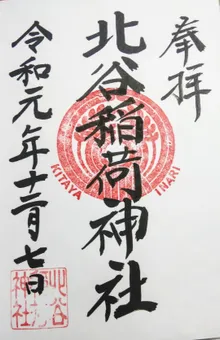 奉拝
北谷稲荷神社
KITAYA INARI
令和元年十二月七日
北谷稲荷神社